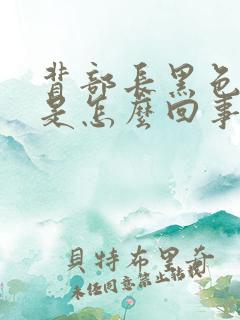 背部長黑色
是怎麼回事
貝特布里奇
未经同意禁止转载